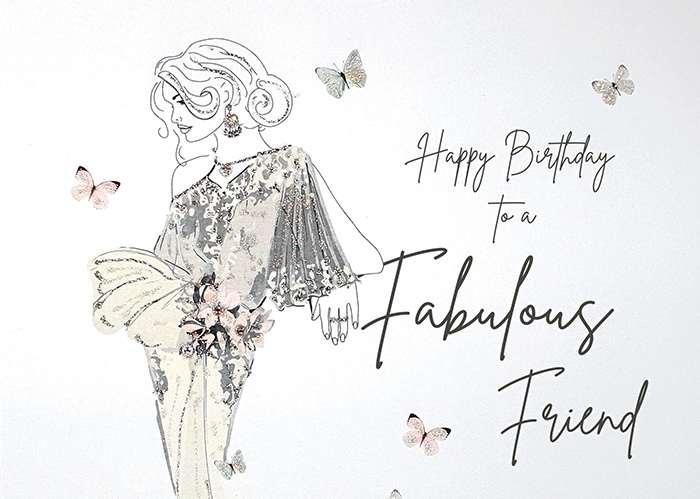 Happy Birthday
to a
Fabulous
Friend